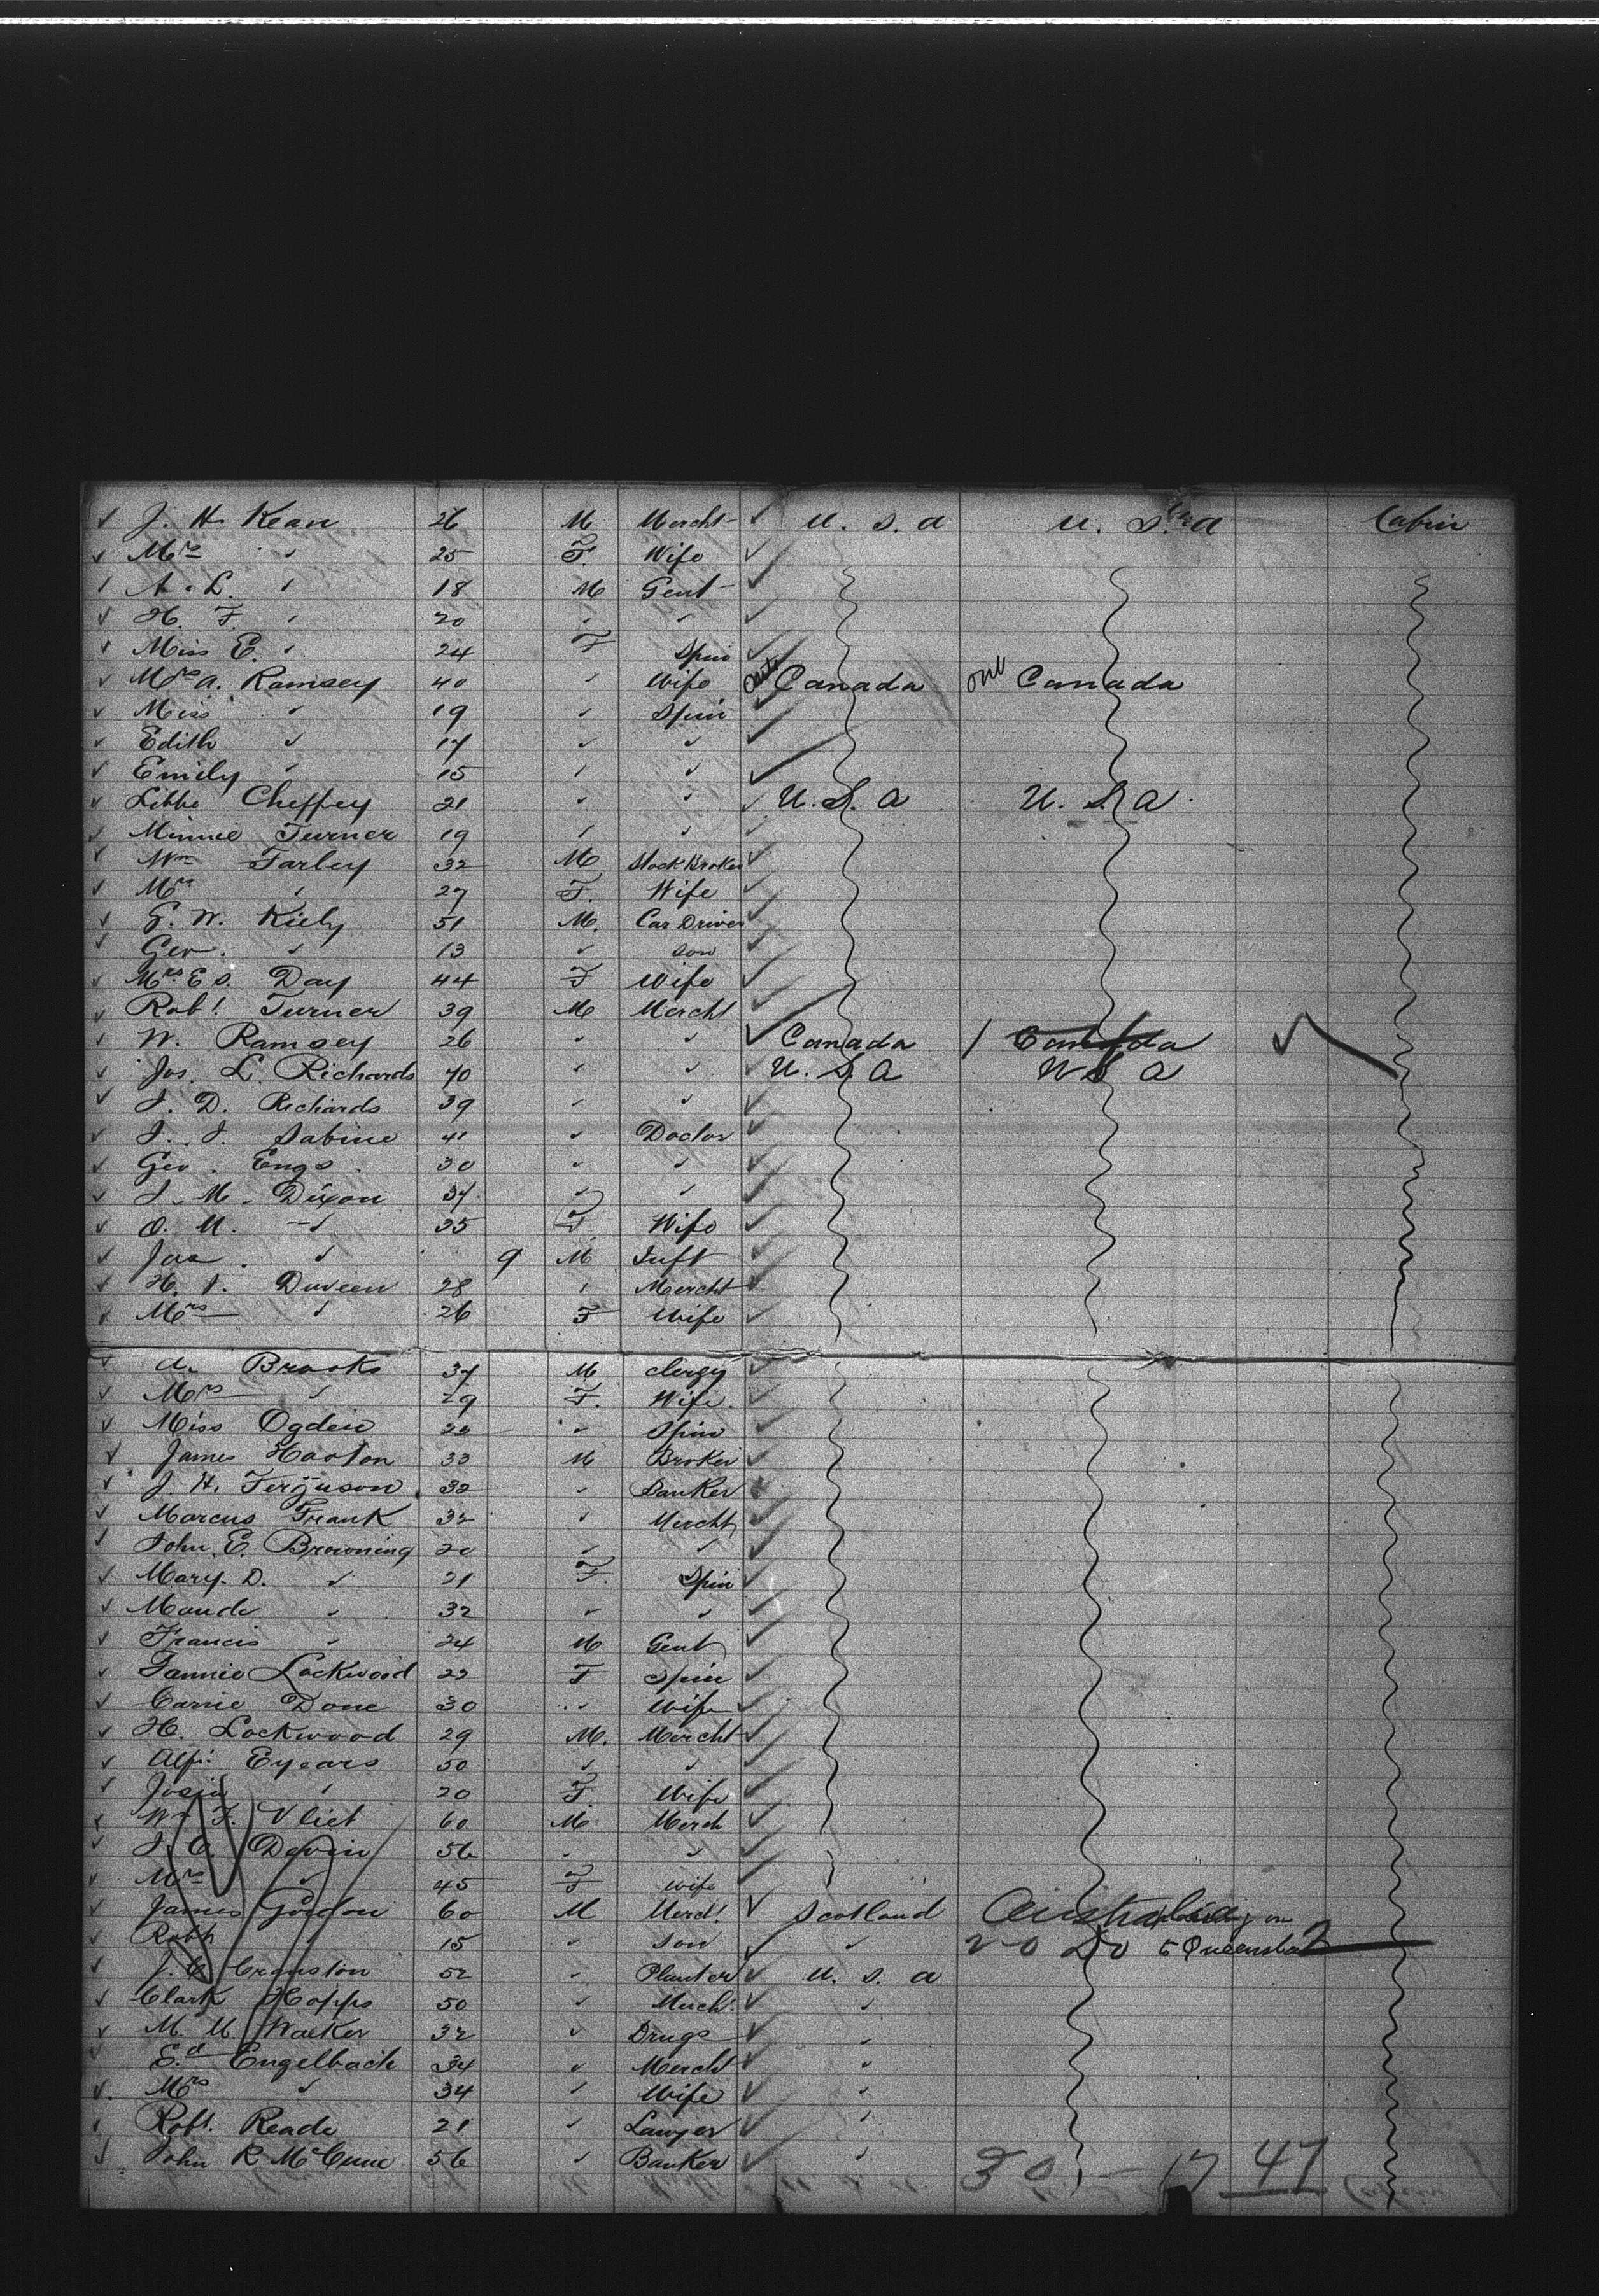 J. H. Kean 26 M Mercht U. S. A U. S. A Cabin
Mrs " 25 F. Wife
A. L. " 18 M Gent
H. F. " 20 " "
Miss E. " 24 F Spin
Mrs A. Ramsey 40 " Wife Canada one Canada
Miss " 19 " Spin
Edith " 17 " "
Emily " 15 " "
Libbe Cheffey 21 " " U. S. A U. S. A
Minnie Turner 19 " "
Wm Farley 32 M Stock Broker
Mrs " 27 F. Wife
G. W. Kiely 51 M. Car Driver
Geo. " 13 " Son
Mrs E S. Day 44 F Wife
Robt. Turner 39 M Mercht
W. Ramsey 26 " " Canada / Canada
Jos. L. Richards 70 " " U. S. A U S A
J. D. Richards 39 " "
J. J. Sabine 41 " Doctor
Geo. Engs 30 " "
J. M. Dixon 37 " "
O. M. " 35 F Wife
Jas. " 9 M Inft
H. J. Duveen 28 " Mercht
Mrs " 26 F Wife
A. Brooks 37 M Clergy
Mrs " 29 F. Wife
Miss Ogden 22 " Spin
James Horton 33 M Broker
J. H. Ferguson 32 " Banker
Marcus Frank 32 " Mercht
John E. Browning 20 " "
Mary D. " 21 F. Spin
Maude " 32 " "
Francis " 24 M Gent
Fannie Lockwood 22 F Spin
Carrie Done 30 " Wife
H. Lockwood 29 M. Mercht
Alf. Eyears 50 " "
Josie " 20 F. Wife
Wm F. Vliet 60 M Merch
J. C. Devin 56 " "
Mrs " 45 F Wife
James Gordon 60 M Mercht. Scotland Australia
Robt " 15 " Son " Do Do
J. C. Cranston 52 " Planter U. S. A
Clark Hopps 50 " Mercht. "
M. M. Walker 32 " Drugs "
Ed Engelbach 34 " Mercht "
Mrs " 34 " Wife "
Robt. Reade 21 " Lawyer "
John R McCune 56 " Banker "
30 - 17 47